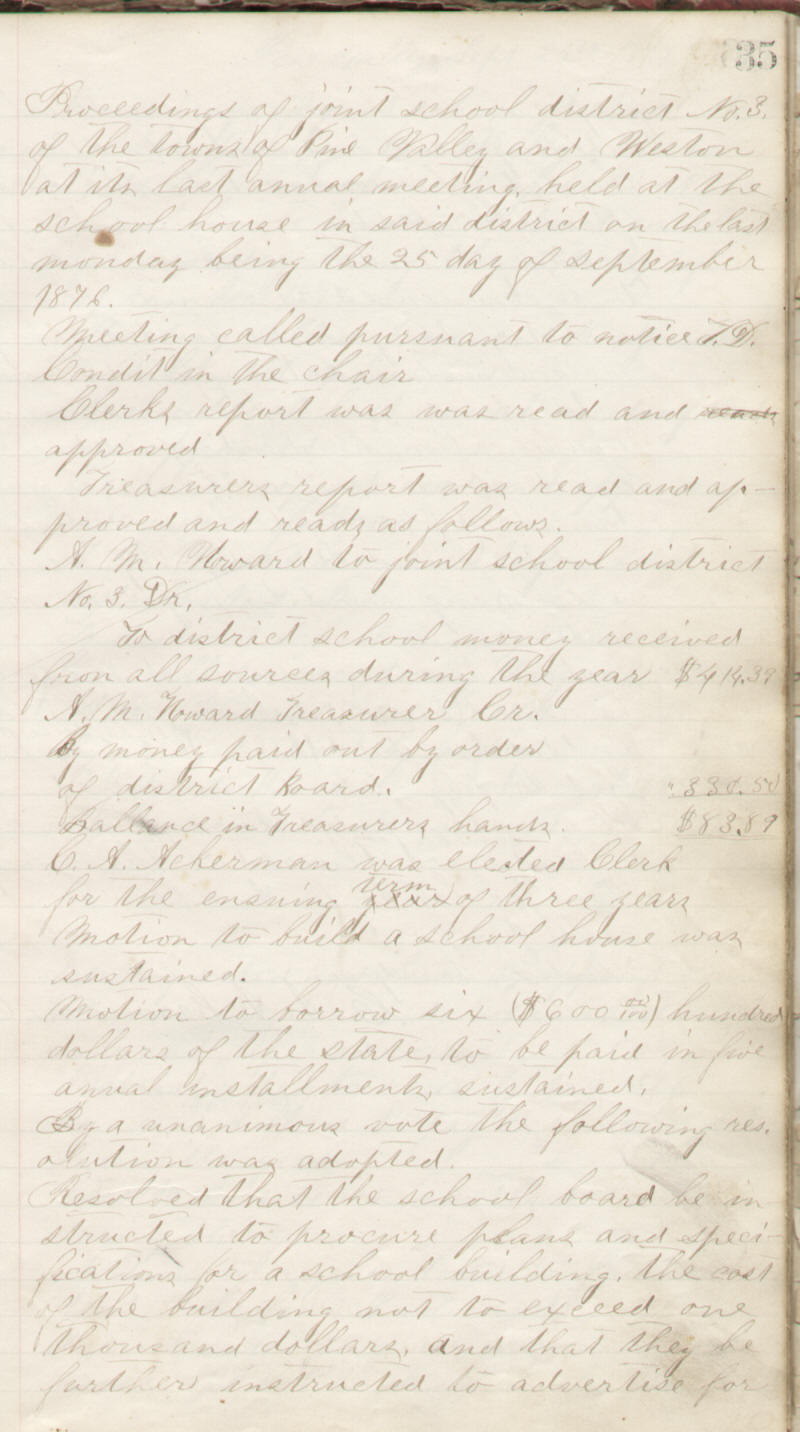 35
Proceedings of joint school district No. 3.
of the towns of Pine Valley and Weston
at its last annual meeting, held at the
school house in said district on the last
monday being the 25 day of september
1876.
Meeting called pursuant to notice T. D.
Condit in the chair
Clerks report was was read and
approved
Treasurers report was read and ap-
proved and reads as follows.
A. M. Howard to joint school district
No. 3. Dr.
To district school money received
from all sources during the year $414.39
A. M. Howard Treasurer Cr.
By money paid out by order
of district Board. " 330.50
Ballance in Treasurers hands. $83.89
C. A. Ackerman was elected Clerk
for the ensuing term of three years
Motion to build a school house was
sustained.
Motion to borrow six ($600 00/100) hundred
dollars of the state, to be paid in five
anual installments, sustained.
By a unanimous vote the following res.
olution was adopted.
Resolved that the school board be in
structed to procure plans and speci-
fications for a school building. the cost
of the building not to exceed one
thousand dollars. and that they be
further instructed to advertise for